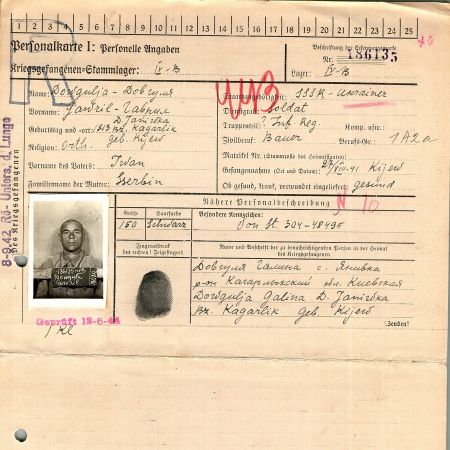 1 2 3 4 5 6 7 8 9 10 11 12 13 14 15 16 17 18 19 20 21 22 23 24 25
Personalkarte I: Personelle Angaben
Beschriftung der Erkennungsmarke
Nr. 186135
Kriegsgefangenen-Stammlager: IV-B
Lager: IV-B
Name: Dowgulia - Довгуля
Staatsangehörigkeit: SSSR - Ukrainer
Vorname: Gawril - Гаврил
Dienstgrad: Soldat
D. Janiwka
Truppenteil: ? Inf. Reg. Komp. usw.:
Geburtstag und -ort: Bz. Kagarlik
Zivilberuf: Bauer Berufs-Gr.: 1A2a
Religion: Orth. Geb. Kijew
Matrikel Nr. (Stammrolle des Heimatstaates)
Vorname des Vaters: Iwan
Gefangennahme (Ort und Datum): 27/VIII-41 Kijew
Familienname der Mutter: Serbin
Ob gesund, krank, verwundet eingeliefert: gesund
8-9.42 Rö- Unters. d. Lunge
des Kriegsgefangenen
Nähere Personalbeschreibung
Größe Haarfarbe Besondere Kennzeichen:
160 Schwarz Von St. 304-48495
Fingerabdruck
des rechten! Zeigefingers!
Name und Anschrift der zu benachrichtigenden Person in der Heimat
des Kriegsgefangenen
Довгуля Галина с. Янивка
р-он Кагарлыкский обл. Киевская
Dowgulia Galina D. Janiwka
Bz. Kagarlik Geb. Kijew
Geprüft 12-6-44
/Zenden!